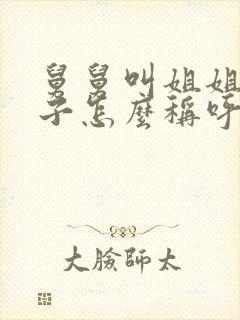 舅舅叫姐姐
子怎麼稱呼
大臉師太